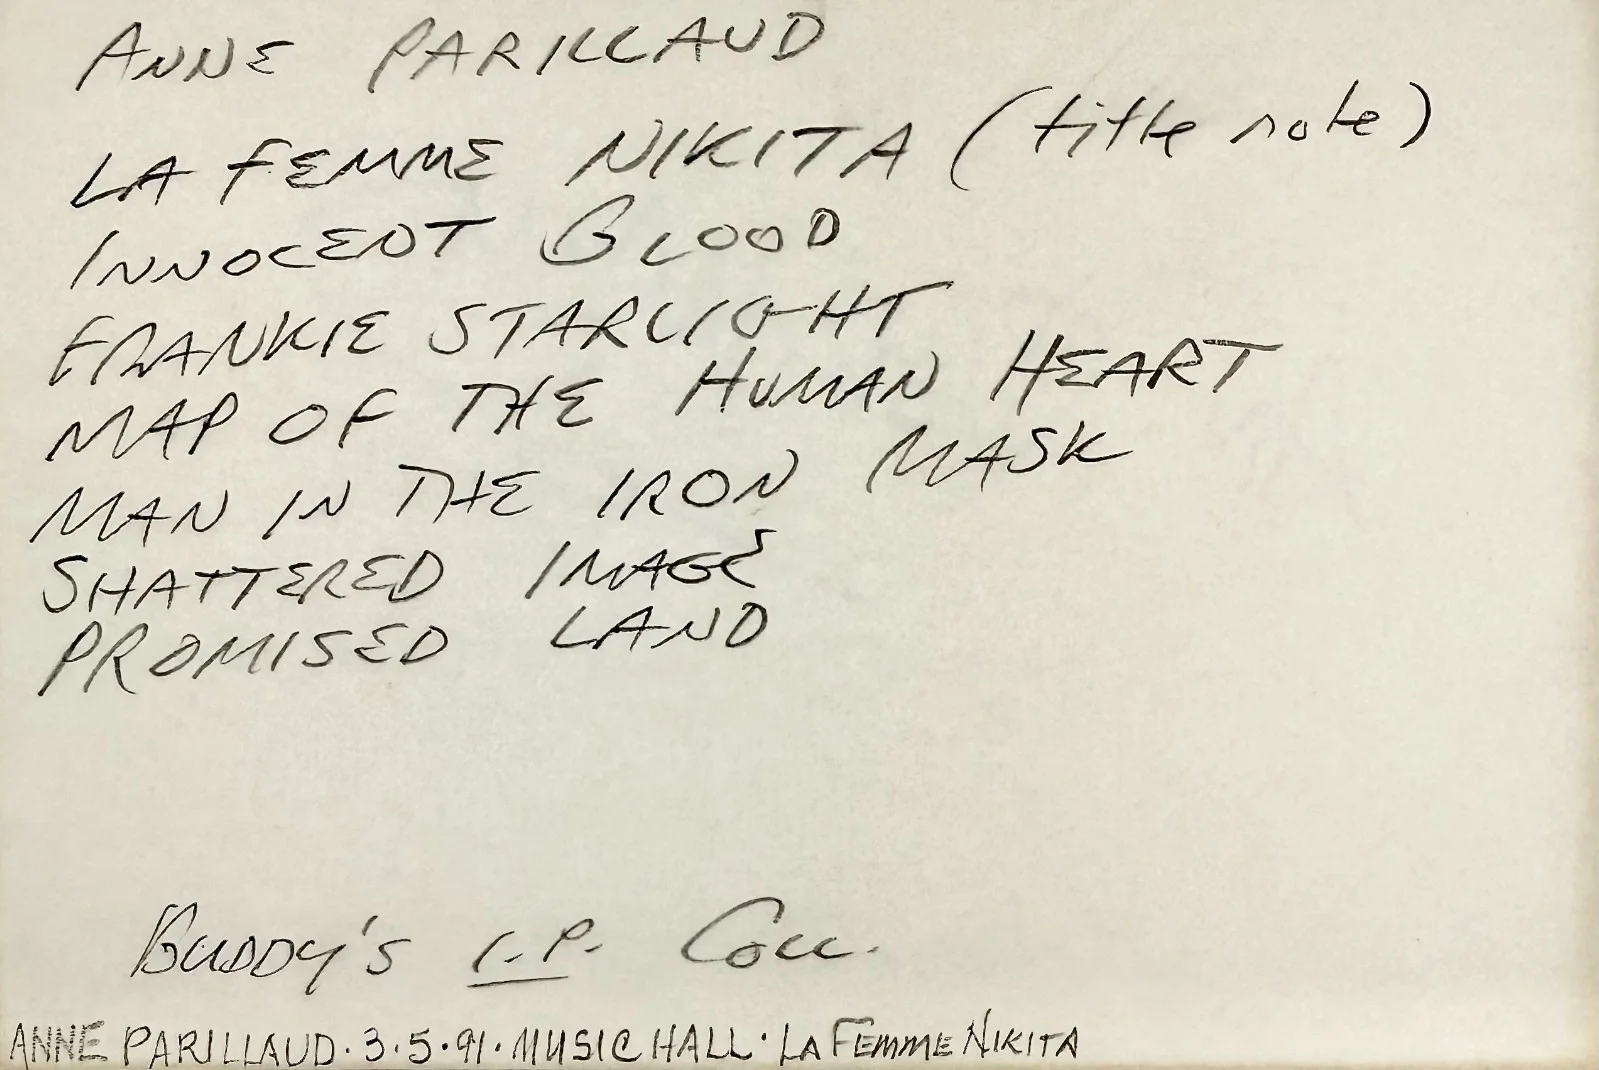 ANNE PARILLAUD
LA FEMME NIKITA (title role)
INNOCENT BLOOD
FRANKIE STARLIGHT
MAP OF THE HUMAN HEART
MAN IN THE IRON MASK
SHATTERED IMAGE
PROMISED LAND
BUDDY'S I.P. COLL.
ANNE PARILLAUD · 3·5·91 · MUSIC HALL · LA FEMME NIKITA